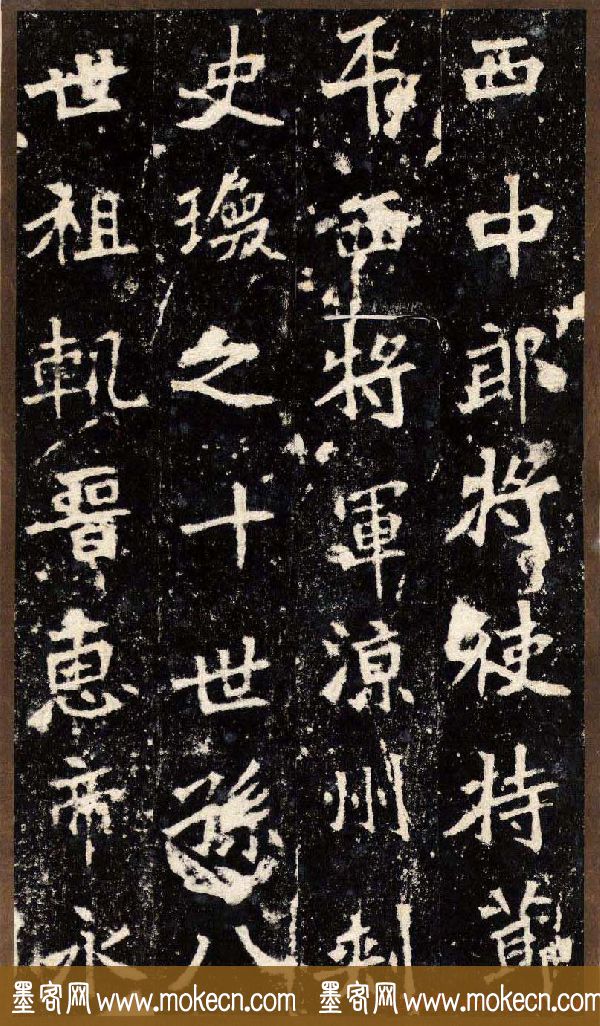 西中郎將使持節
平西將軍涼州刾
史瓊之十世孫八
世祖軌晉惠帝永
墨客网 www.mokecn.com 墨客网 www.mokecn.com